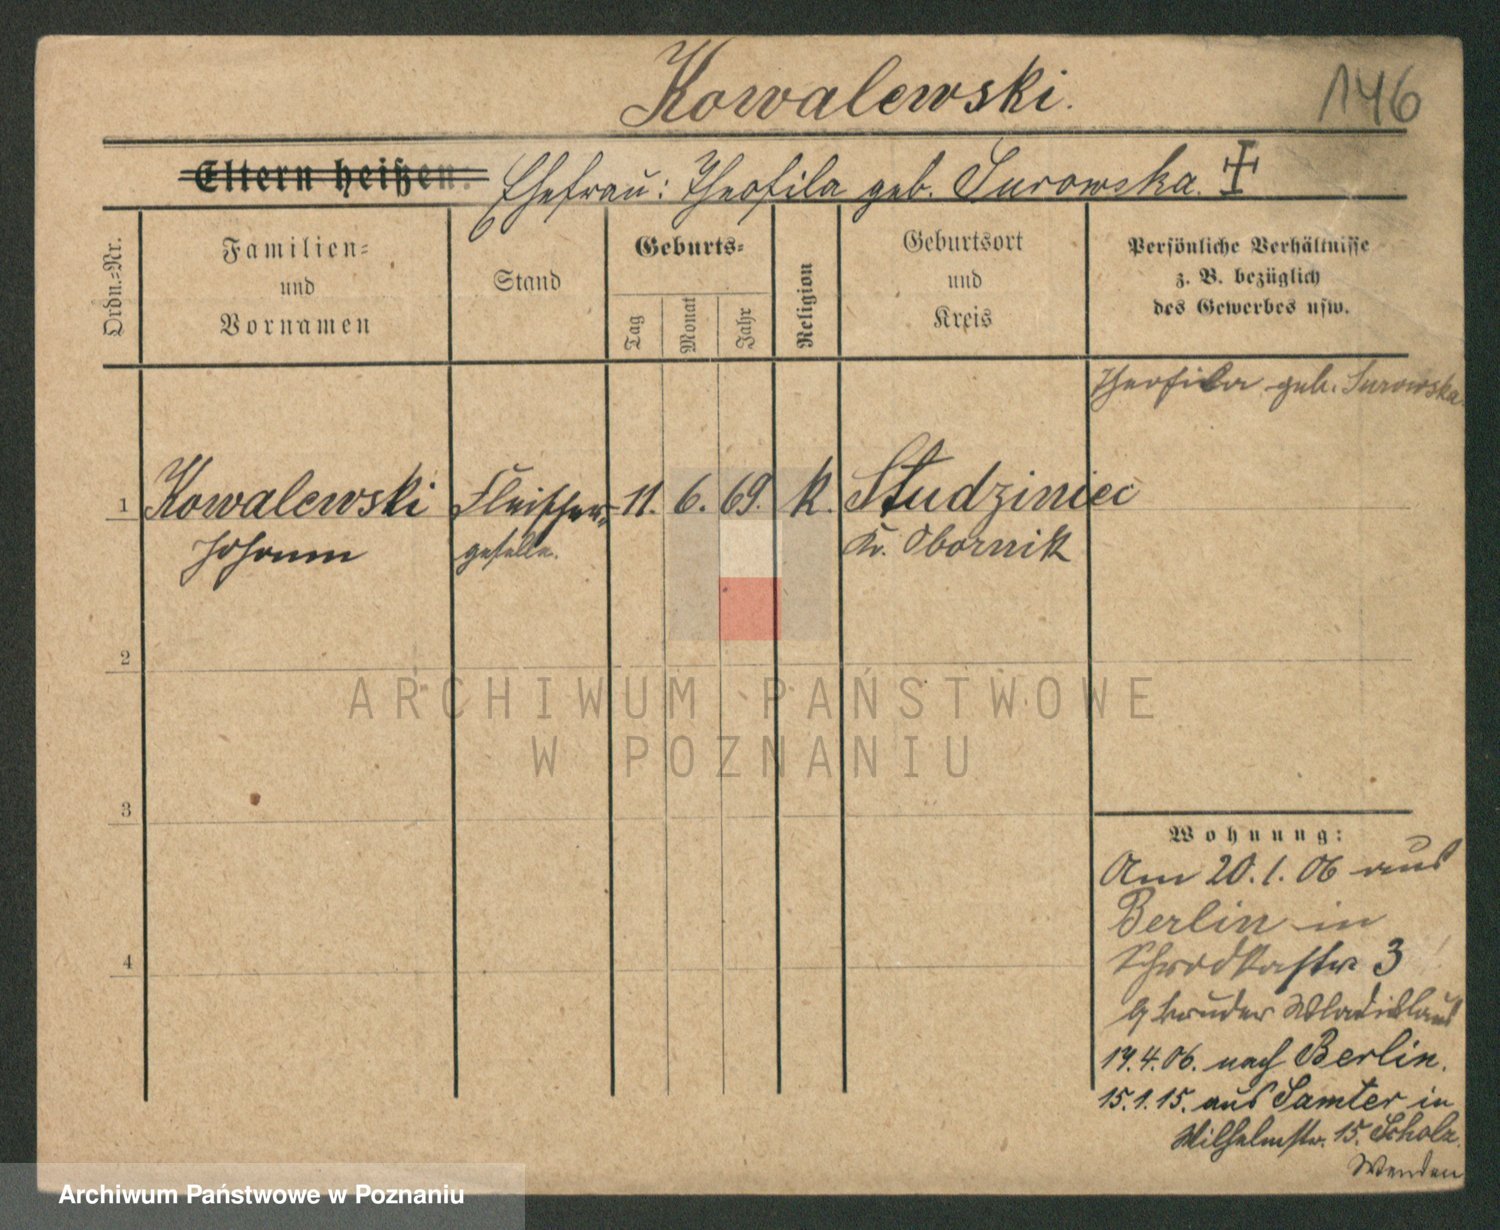 Kowalewski.
146
Eltern heißen:
Ehefrau: Theofila geb. Surowska.
Ordn.=Nr.
Familien=
und
Vornamen
Stand
Geburts=
Tag
Monat
Jahr
Religion
Geburtsort
und
Kreis
Persönliche Verhältnisse
z. B. bezüglich
des Gewerbes usw.
Theofila geb. Surowska.
1
Kowalewski
Johann
Fleischer=
geselle.
11. 6. 69. k.
Studziniec
Kr. Obornik
2
3
4
Wohnung:
Am 20.1.06 aus
Berlin in
Schrodkastr 3
Bruder Wladislaus
17.4.06. nach Berlin.
15.1.15. aus Samter in
Wilhelmstr. 15. Scholz.
Wenden
ARCHIWUM PAŃSTWOWE
W POZNANIU
Archiwum Państwowe w Poznaniu